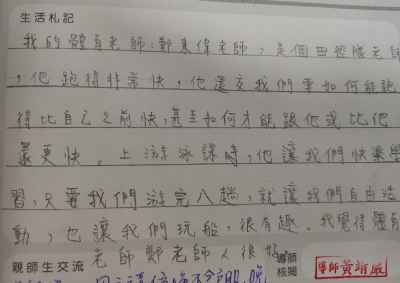 生活札記
我的體育老師:鄭東偉老師,是個田徑隊老師
,他跑得非常快,他還交我們要如何能跑
得比自己之前快,甚至如何才能跟他或比他
還更快。上游泳課時,他讓我們快樂學
習,只要我們游完八趟,就讓我們自由活
動,也讓我們玩船,很有趣。我覺得體育
老師鄭老師人很
親師生交流
導師
核閱
導師黃